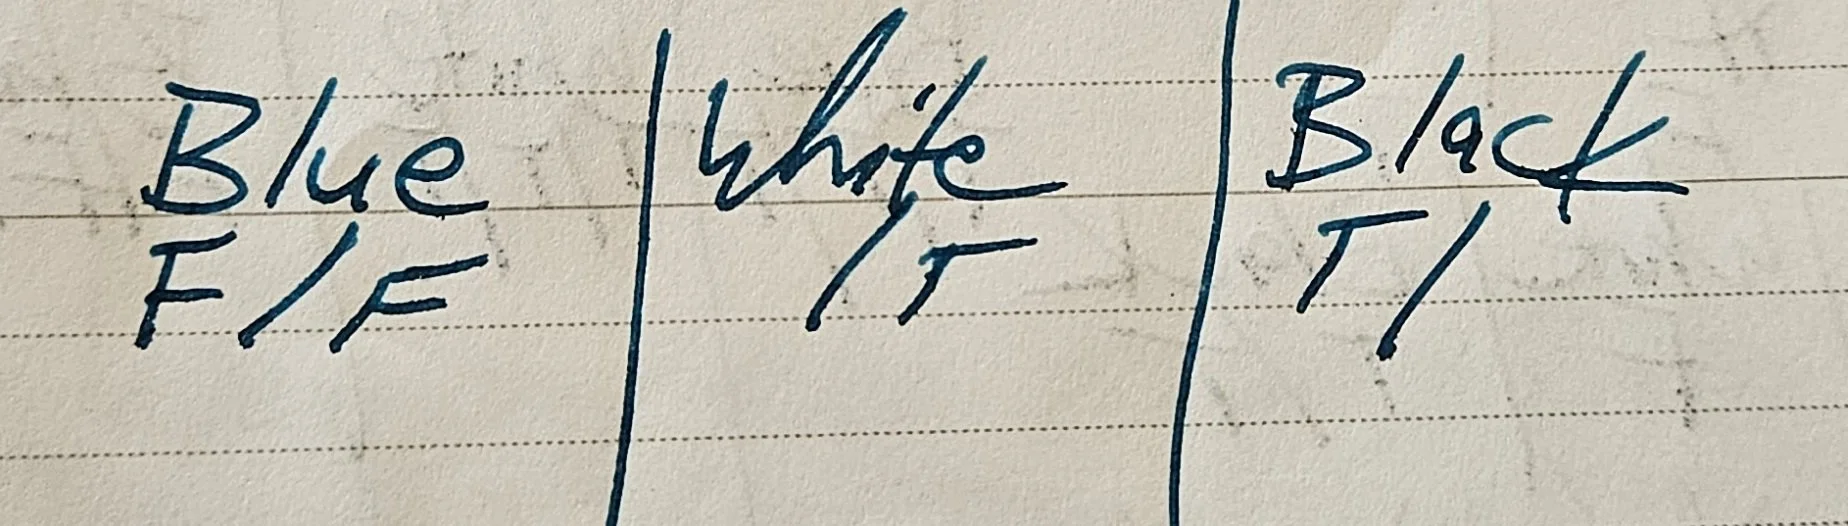 Blue | White | Black
F/F | /T | T/